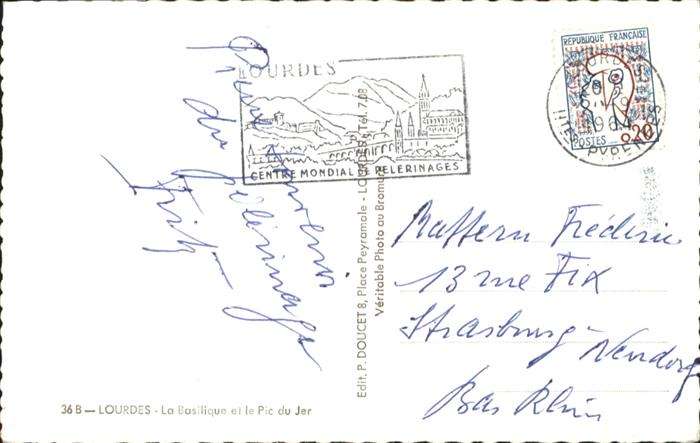 Bien souvenir
du pèlerinage
Fritz
LOURDES
CENTRE MONDIAL DE PELERINAGES
RÉPUBLIQUE FRANÇAISE
POSTES 0,20
LOURDES
Edit. P. DOUCET 8, Place Peyramale - LOURDES - Tél. 7.08
Véritable Photo au Bromure
Frédéric
13 rue FIX
Strasbourg-Neudorf
Bas Rhin
36 B — LOURDES - La Basilique et le Pic du Jer